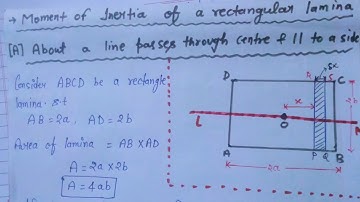 → Moment of Inertia of a rectangular lamina
[A] About a line passes through centre & 11 to a side
Consider ABCD be a rectangle
lamina. s.t
AB = 2a, AD = 2b
Area of lamina = AB x AD
A = 2a x 2b
A = 4ab
δx
D R S C
x
2b
L O M
A P Q B
2a